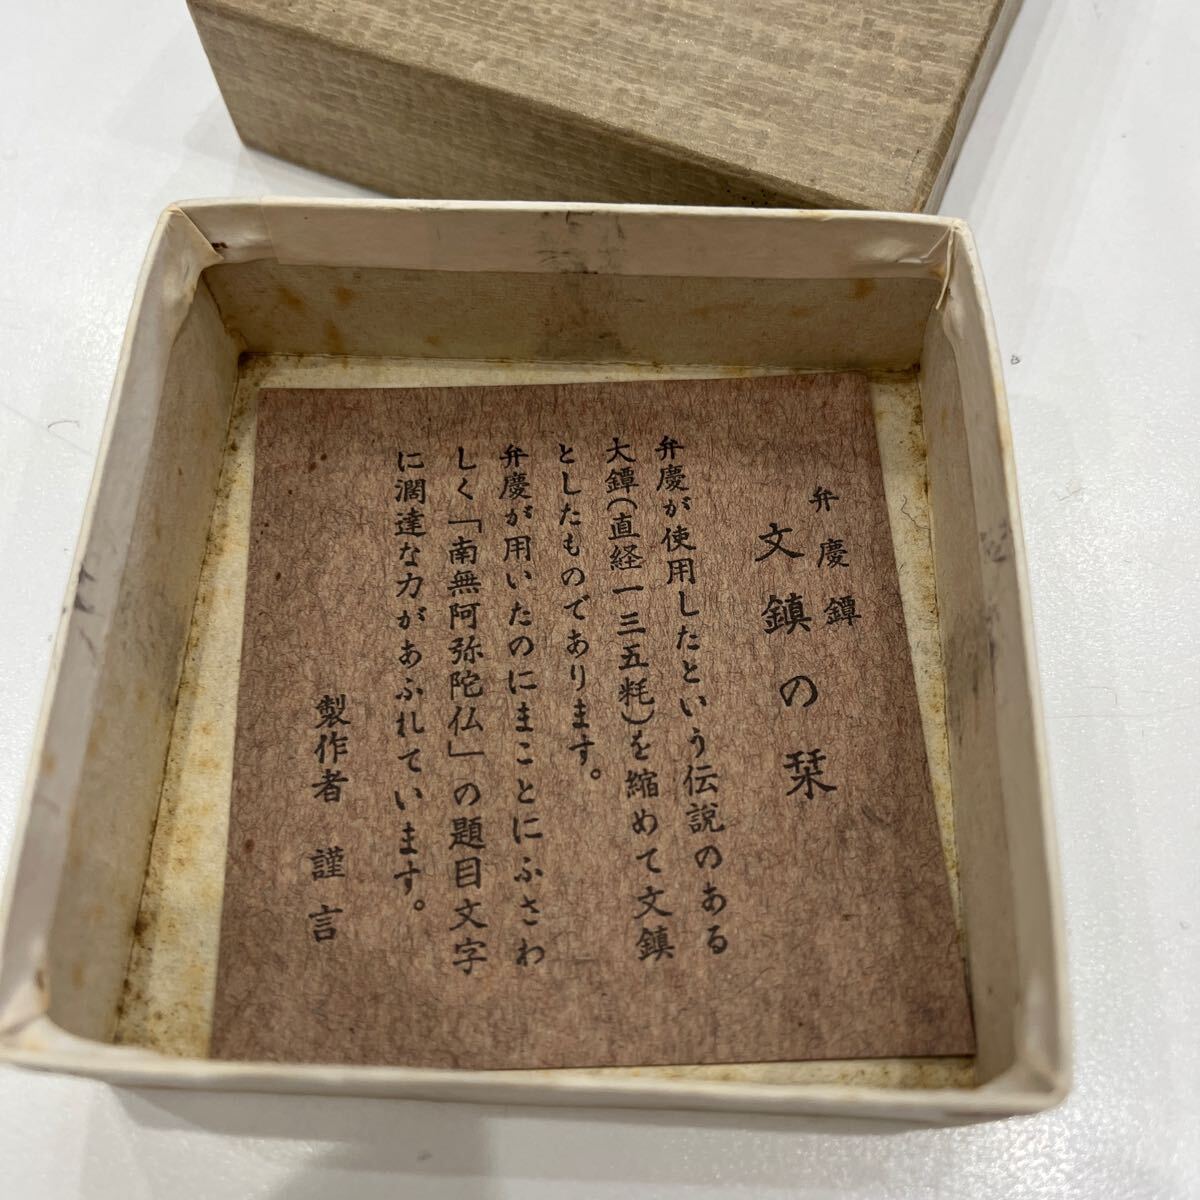 弁慶鐔
文鎮の栞
弁慶が使用したという伝説のある
大鐔(直経一三五粍)を縮めて文鎮
としたものであります。
弁慶が用いたのにまことにふさわ
しく「南無阿弥陀仏」の題目文字
に濶達な力があふれています。
製作者 謹言